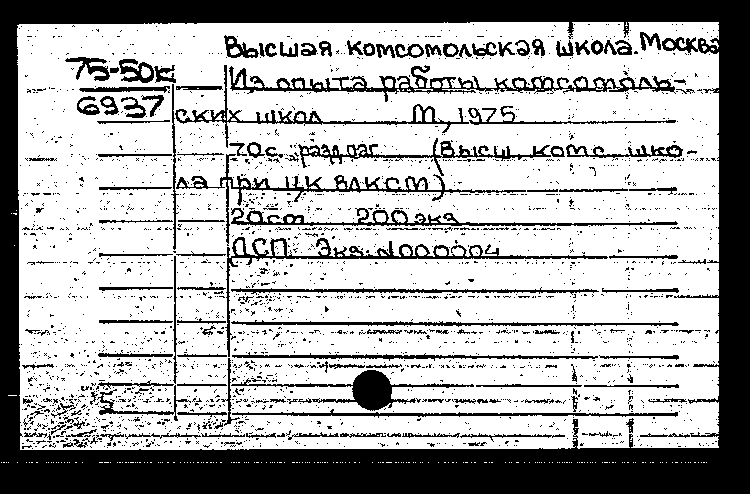 Высшая комсомольская школа. Москва
75-50к
Из опыта работы комсомоль-
6937
ских школ М, 1975
70с разд паг (Высш. комс шко-
ла при ЦК ВЛКСМ)
20см 200 экз
ДСП Экз. N000004